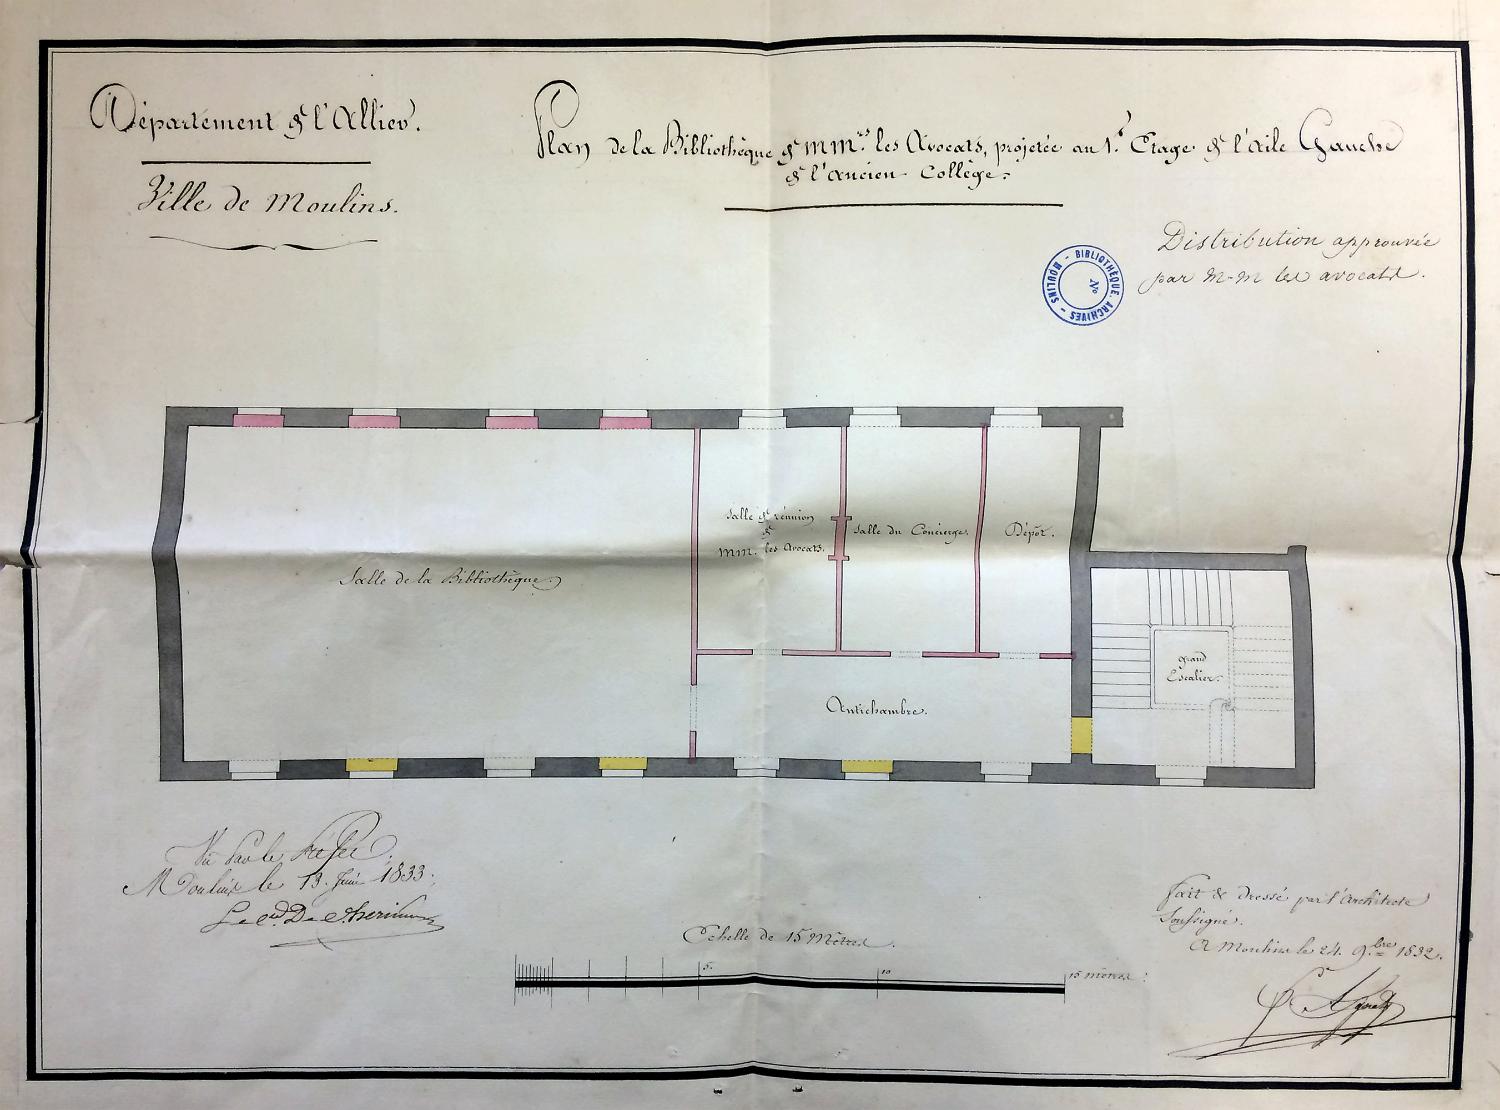 Département de l'Allier.
Ville de Moulins.
Plan de la Bibliothèque de MM.rs les Avocats, projetée au 1.r Etage de l'aile Gauche
de l'ancien Collège.
Distribution approuvée
par M-M les avocats.
BIBLIOTHÈQUE. ARCHIVES - MOULINS -
N°
Salle de réunion
de
MM. les Avocats.
Salle du Concierge.
Dépôt.
Salle de la Bibliothèque.
grand
Escalier.
Antichambre.
Vu par le Préfet
Moulins le 13. Juin 1833.
Le
Fait & dressé par l'Architecte
Soussigné.
A Moulins le 24. 9.bre 1832.
Echelle de 15 Mètres.
5. 10 15 mètres.